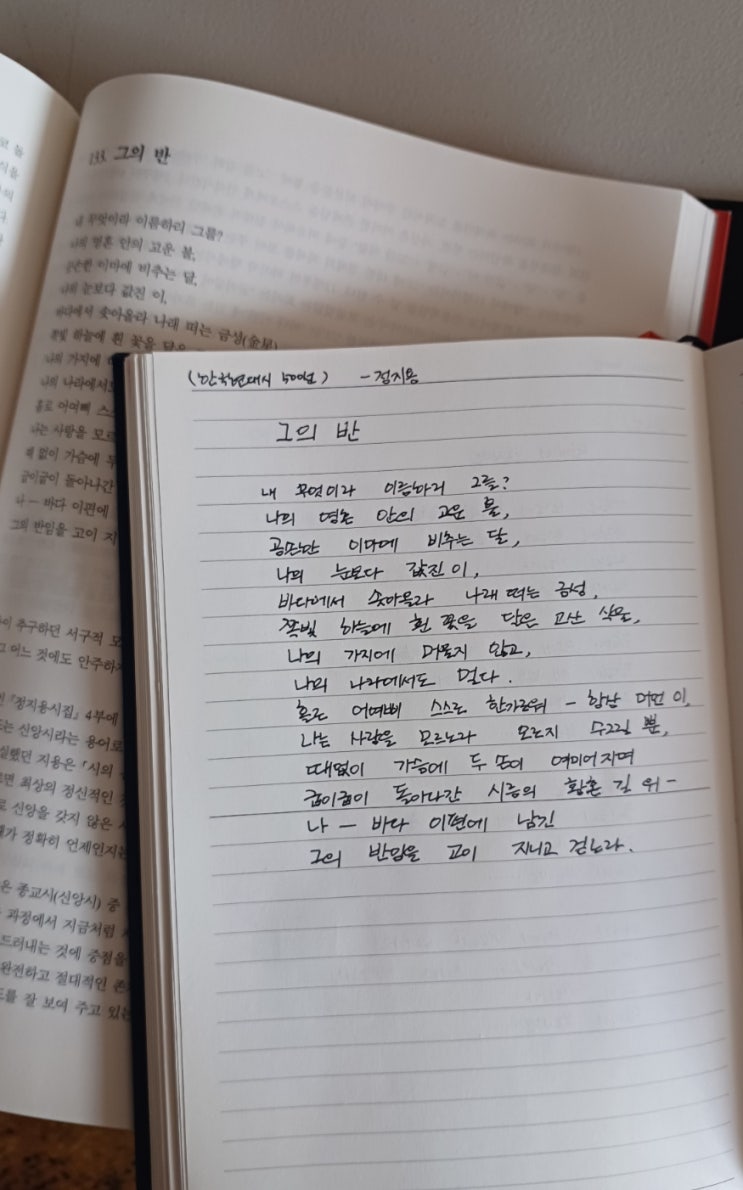 133. 그의 반
내 무엇이라 이름하리 그를?
나의 영혼 안의 고운 불,
공손한 이마에 비추는 달,
나의 눈보다 값진 이,
바다에서 솟아올라 나래 떠는 금성(金星)
쪽빛 하늘에 흰 꽃을
나의 가지에
나의 나라에서도
홀로 어여삐
나는 사랑을
때 없이 가슴에 두
굽이굽이 돌아나간
나— 바다 이편에
그의 반임을 고이 지
추구하던 서구적
어느 것에도 안주하지
『정지용시집』 4부에
신앙시라는 용어로
지용은 「시의
최상의 정신적인
신앙을 갖지 않은
정확히 언제인지는
종교시(신앙시) 중
과정에서 지금처럼
드러내는 것에 중점을
완전하고 절대적인
잘 보여 주고 있는
(한국현대시 500선) - 정지용
그의 반
내 무엇이라 이름하리 그를?
나의 영혼 안의 고운 불,
공손한 이마에 비추는 달,
나의 눈보다 값진 이,
바다에서 솟아올라 나래 떠는 금성,
쪽빛 하늘에 흰 꽃을 닮은 고산 식물,
나의 가지에 머물지 않고,
나의 나라에서도 멀다.
홀로 어여삐 스스로 한가로워 - 항상 머언 이,
나는 사랑을 모르노라 오로지 수그릴 뿐,
때없이 가슴에 두 손이 여미어지며
굽이굽이 돌아나간 시름의 황혼 길 위 -
나 - 바다 이편에 남긴
그의 반임을 고이 지니고 걷노라.